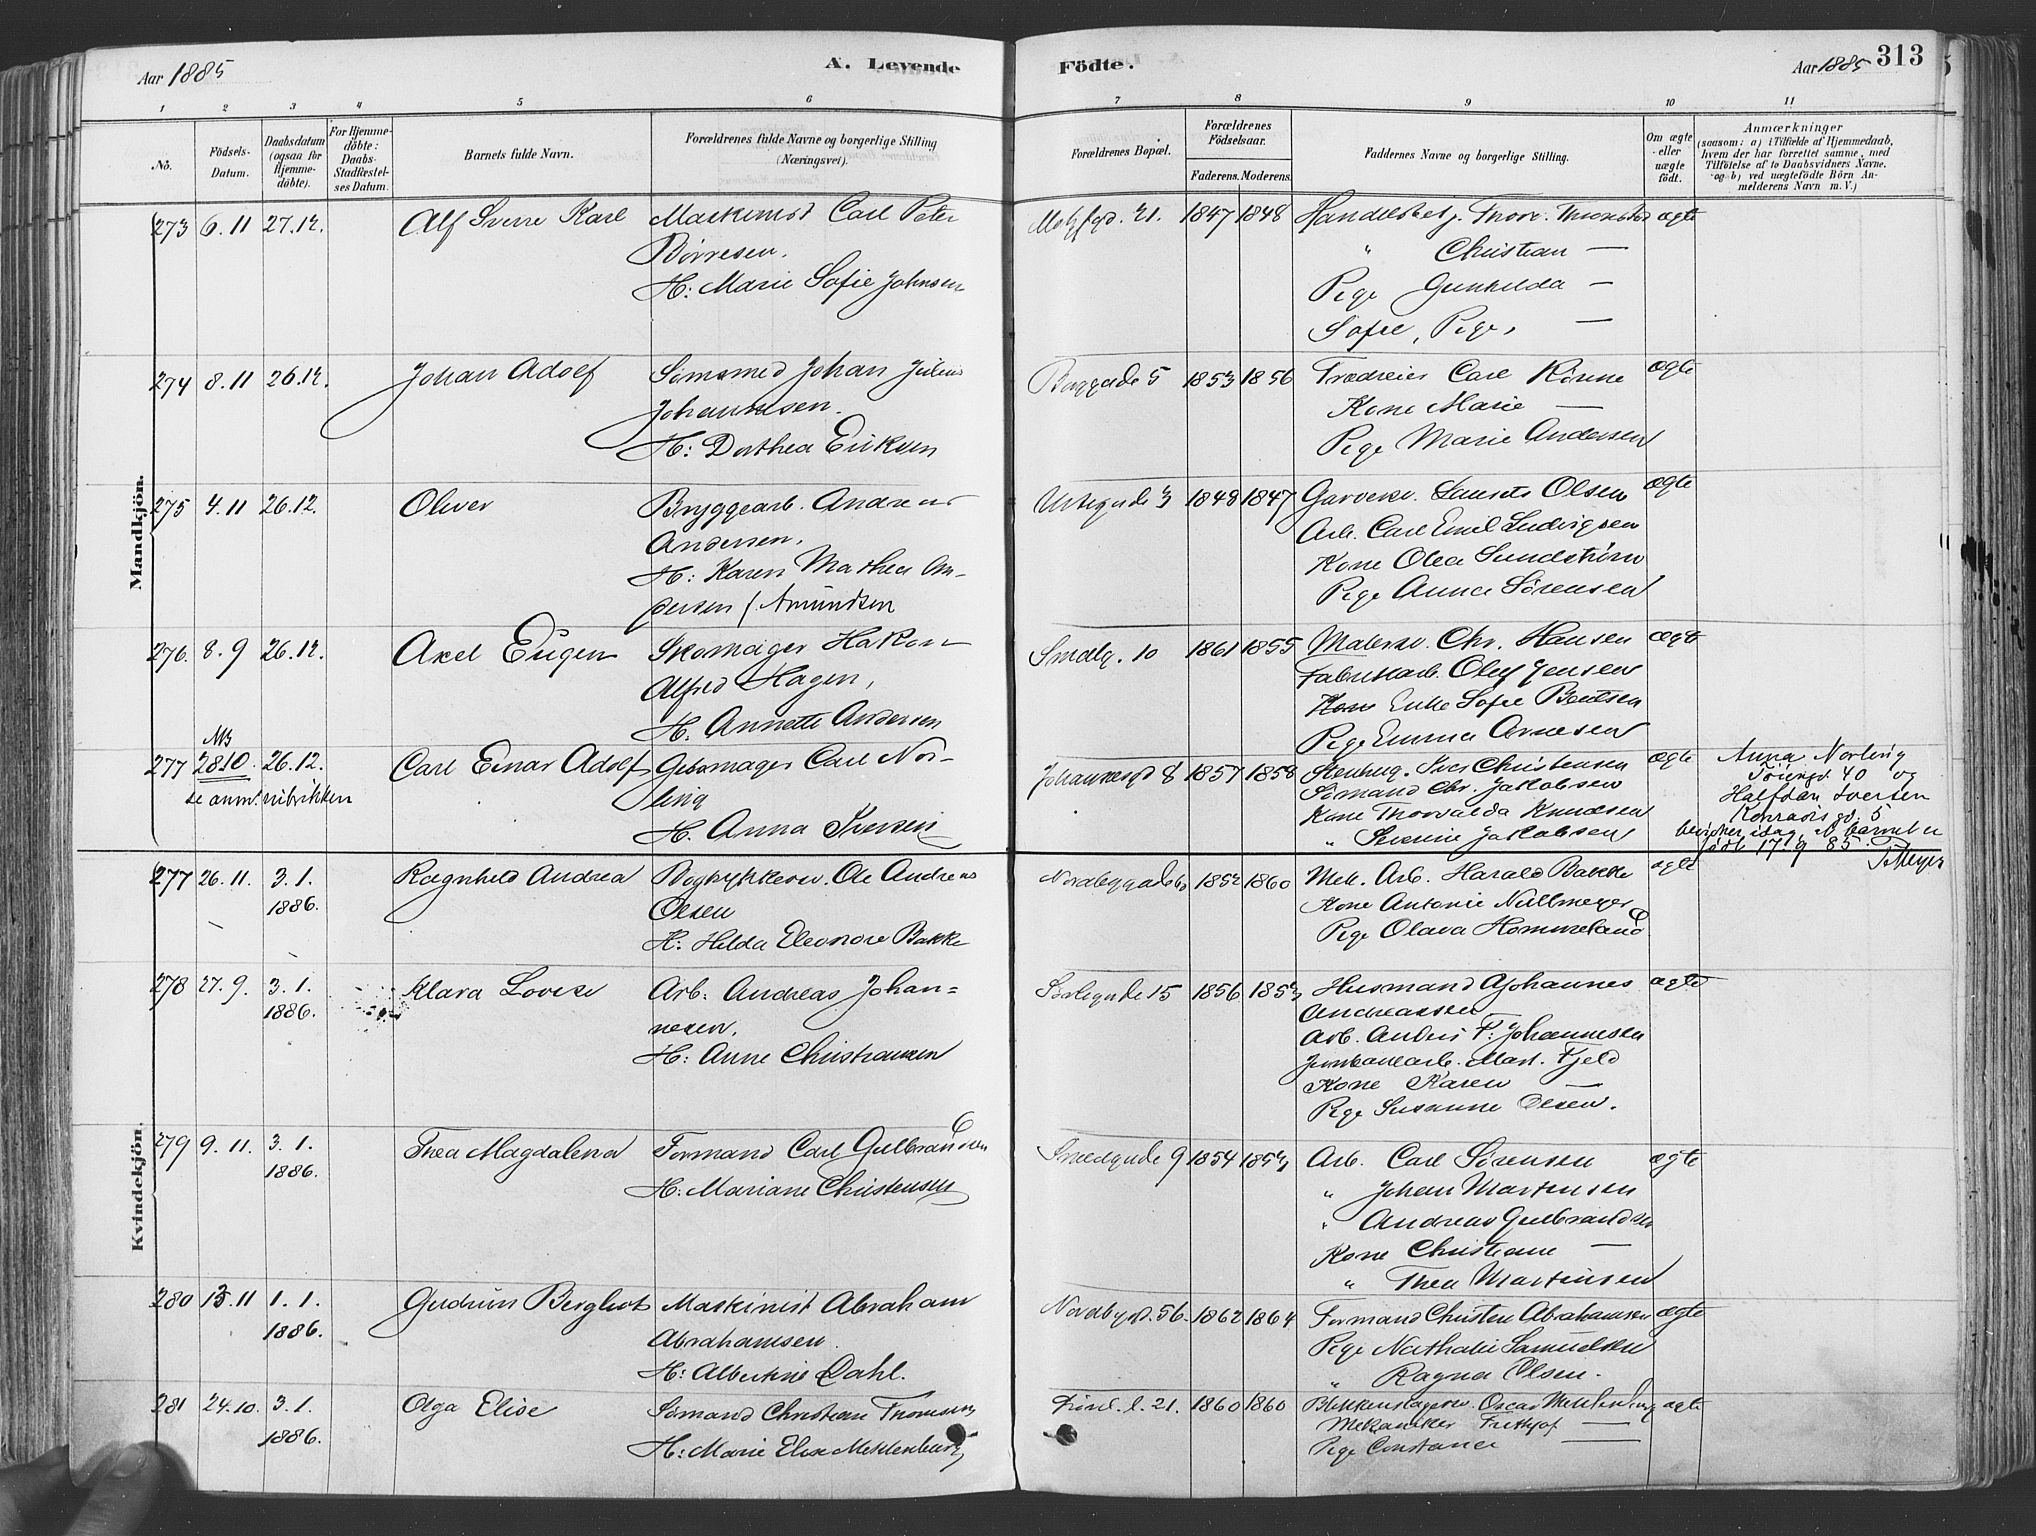 Aar 1885
A. Levende
Födte.
Aar 1885
313
1 2 3 4 5 6 7 8 9 10 11
No.
Födsels-Datum.
Daabsdatum (ogsaa for Hjemme-döbte).
For Hjemme-döbte: Daabs-Stadfæstel-ses Datum.
Barnets fulde Navn.
Forældrenes fulde Navne og borgerlige Stilling (Næringsvei).
Forældrenes Bopæl.
Forældrenes Födselsaar.
Faderens. Moderens.
Faddernes Navne og borgerlige Stilling.
Om ægte eller uægte födt.
Anmærkninger
(saasom: a) i Tilfælde af Hjemmedaab, hvem der har forrettet samme, med Tilföielse af to Daabsvidners Navne. og b) ved uægtefödte Börn Anmelderens Navn m. V.)
Mandkjön.
273 6.11 27.12. Alf Sverre Karl Maskinist Carl Peter 1847 1848 ægte
Børresen.
H: Marie Sofie Johnsen
Christian —
Pige Gunhilda —
Sofie, Pige, —
274 8.11 26.12. Johan Adolf Johan Julius Baggade 5 1853 1856 Carl Rönne ægte
Johannesen.
H: Dorthea Eriksen
Kone Marie —
Pige Marie Andersen
275 4.11 26.12. Oliver Bryggearb. Andreas Urtegade 3 1848 1847 Garversv. Laurits Olsen ægte
Andersen,
H: Karen Mathea An-
dersen / Amundsen
Arb. Carl Emil Ludvigsen
Kone Olea Sundstrøm
Pige Anna Sörensen
276. 8.9 26.12. Axel Eugen Skomager Hakon Smalg. 10 1861 1855 Malersv. Chr. Hansen ægte
Alfred Hagen,
H. Annette Andersen
Fabrikarb. Oluf Jensen
Kone Sofie Bentsen
Pige Emma Arnesen
NB
277 28.10. 26.12. Carl Einar Adolf Carl Nor- Johannesgd 8 1857 1858 Iver Christensen ægte
se anm. rubrikken
ling
H. Anna Iversen
Sömand Chr. Jakobsen
Kone Thorvalda Knudsen
" Severine Jakobsen
Anna Norling
Töiengd. 40 og
Halfdan Iversen
Konradis gd. 5
beviser idag at barnet er
födt 17.9 85.
Meyer
Kvindekjön.
277 26.11. 3.1. 1886. Ragnhild Andrea Bogtrykkersv. Ole Andreas 1852 1860 Mek. Arb. Harald Bakke ægte
Olsen
H: Hilda Eleonore Bakke
Kone Antonie Nullmeyer
Pige Olava Hommeland
278 27.9. 3.1. 1886. Klara Lovise Arb: Andreas Johan- 15 1856 1853 Husmand Johannes ægte
nesen.
H: Anne Christiansen
Andreassen
Arb. Anders F. Johannesen
Jernbanearb. Mart. Fjeld
Kone Karen —
Pige Susanne Olsen.
279 9.11. 3.1. 1886. Thea Magdalena Formand Carl Gulbrandsen Smedgade 9 1854 1853 Arb. Carl Sörensen ægte
H: Mariane Christensen
" Johan Martinsen
" Andreas Gulbrandsen
Kone Christiane —
" Thea Martinsen
280 13.11 1.1. 1886. Gudrun Bergliot Maskinist Abraham Nordbygd. 56. 1862 1864 Formand Christen Abrahamsen ægte
Abrahamsen.
H: Albertine Dahl.
Pige Nathalie Samuelsen
" Ragna Olsen.
281 24.10. 3.1. 1886. Olga Elise Sömand Christian Thomsen 21. 1860 1860 Blikkenslagersv. Oscar Mehlenburg ægte
H: Marie Elise Mehlenburg
Mekaniker Frithjof —
Pige Constance —